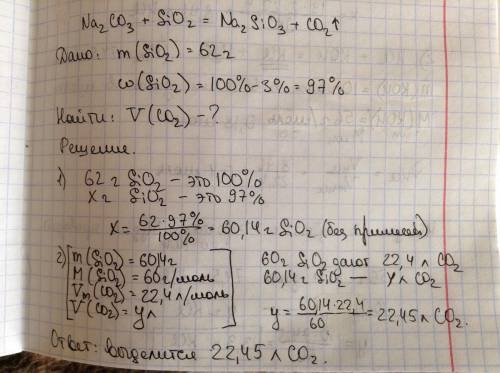 Na₂CO₃ + SiO₂ = Na₂SiO₃ + CO₂↑
Дано: m(SiO₂) = 62г
ω(SiO₂) = 100% - 3% = 97%
Найти: V(CO₂) - ?
Решение.
1) 62 г SiO₂ – это 100%
X г SiO₂ – это 97%
X = 62·97% / 100% = 60,14 г SiO₂ (без примесей)
2) m(SiO₂) = 60,14г
M(SiO₂) = 60 г/моль
Vm(CO₂) = 22,4 л/моль
V(CO₂) = y л
60г SiO₂ дают 22,4 л CO₂
60,14г SiO₂ — y л CO₂
y = 60,14·22,4 / 60 = 22,45 л CO₂.
Ответ: выделится 22,45 л CO₂.